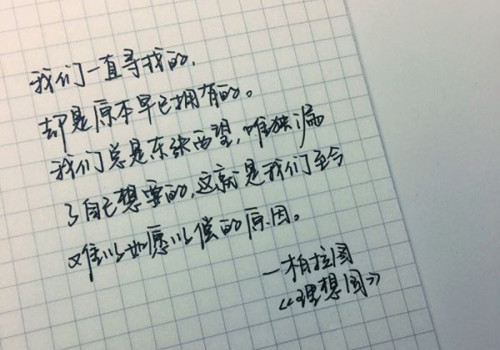 我们一直寻找的，
却是原本早已拥有的。
我们总是东张西望，唯独漏
了自己想要的，这就是我们至今
难以如愿以偿的原因。
—柏拉图
《理想国》